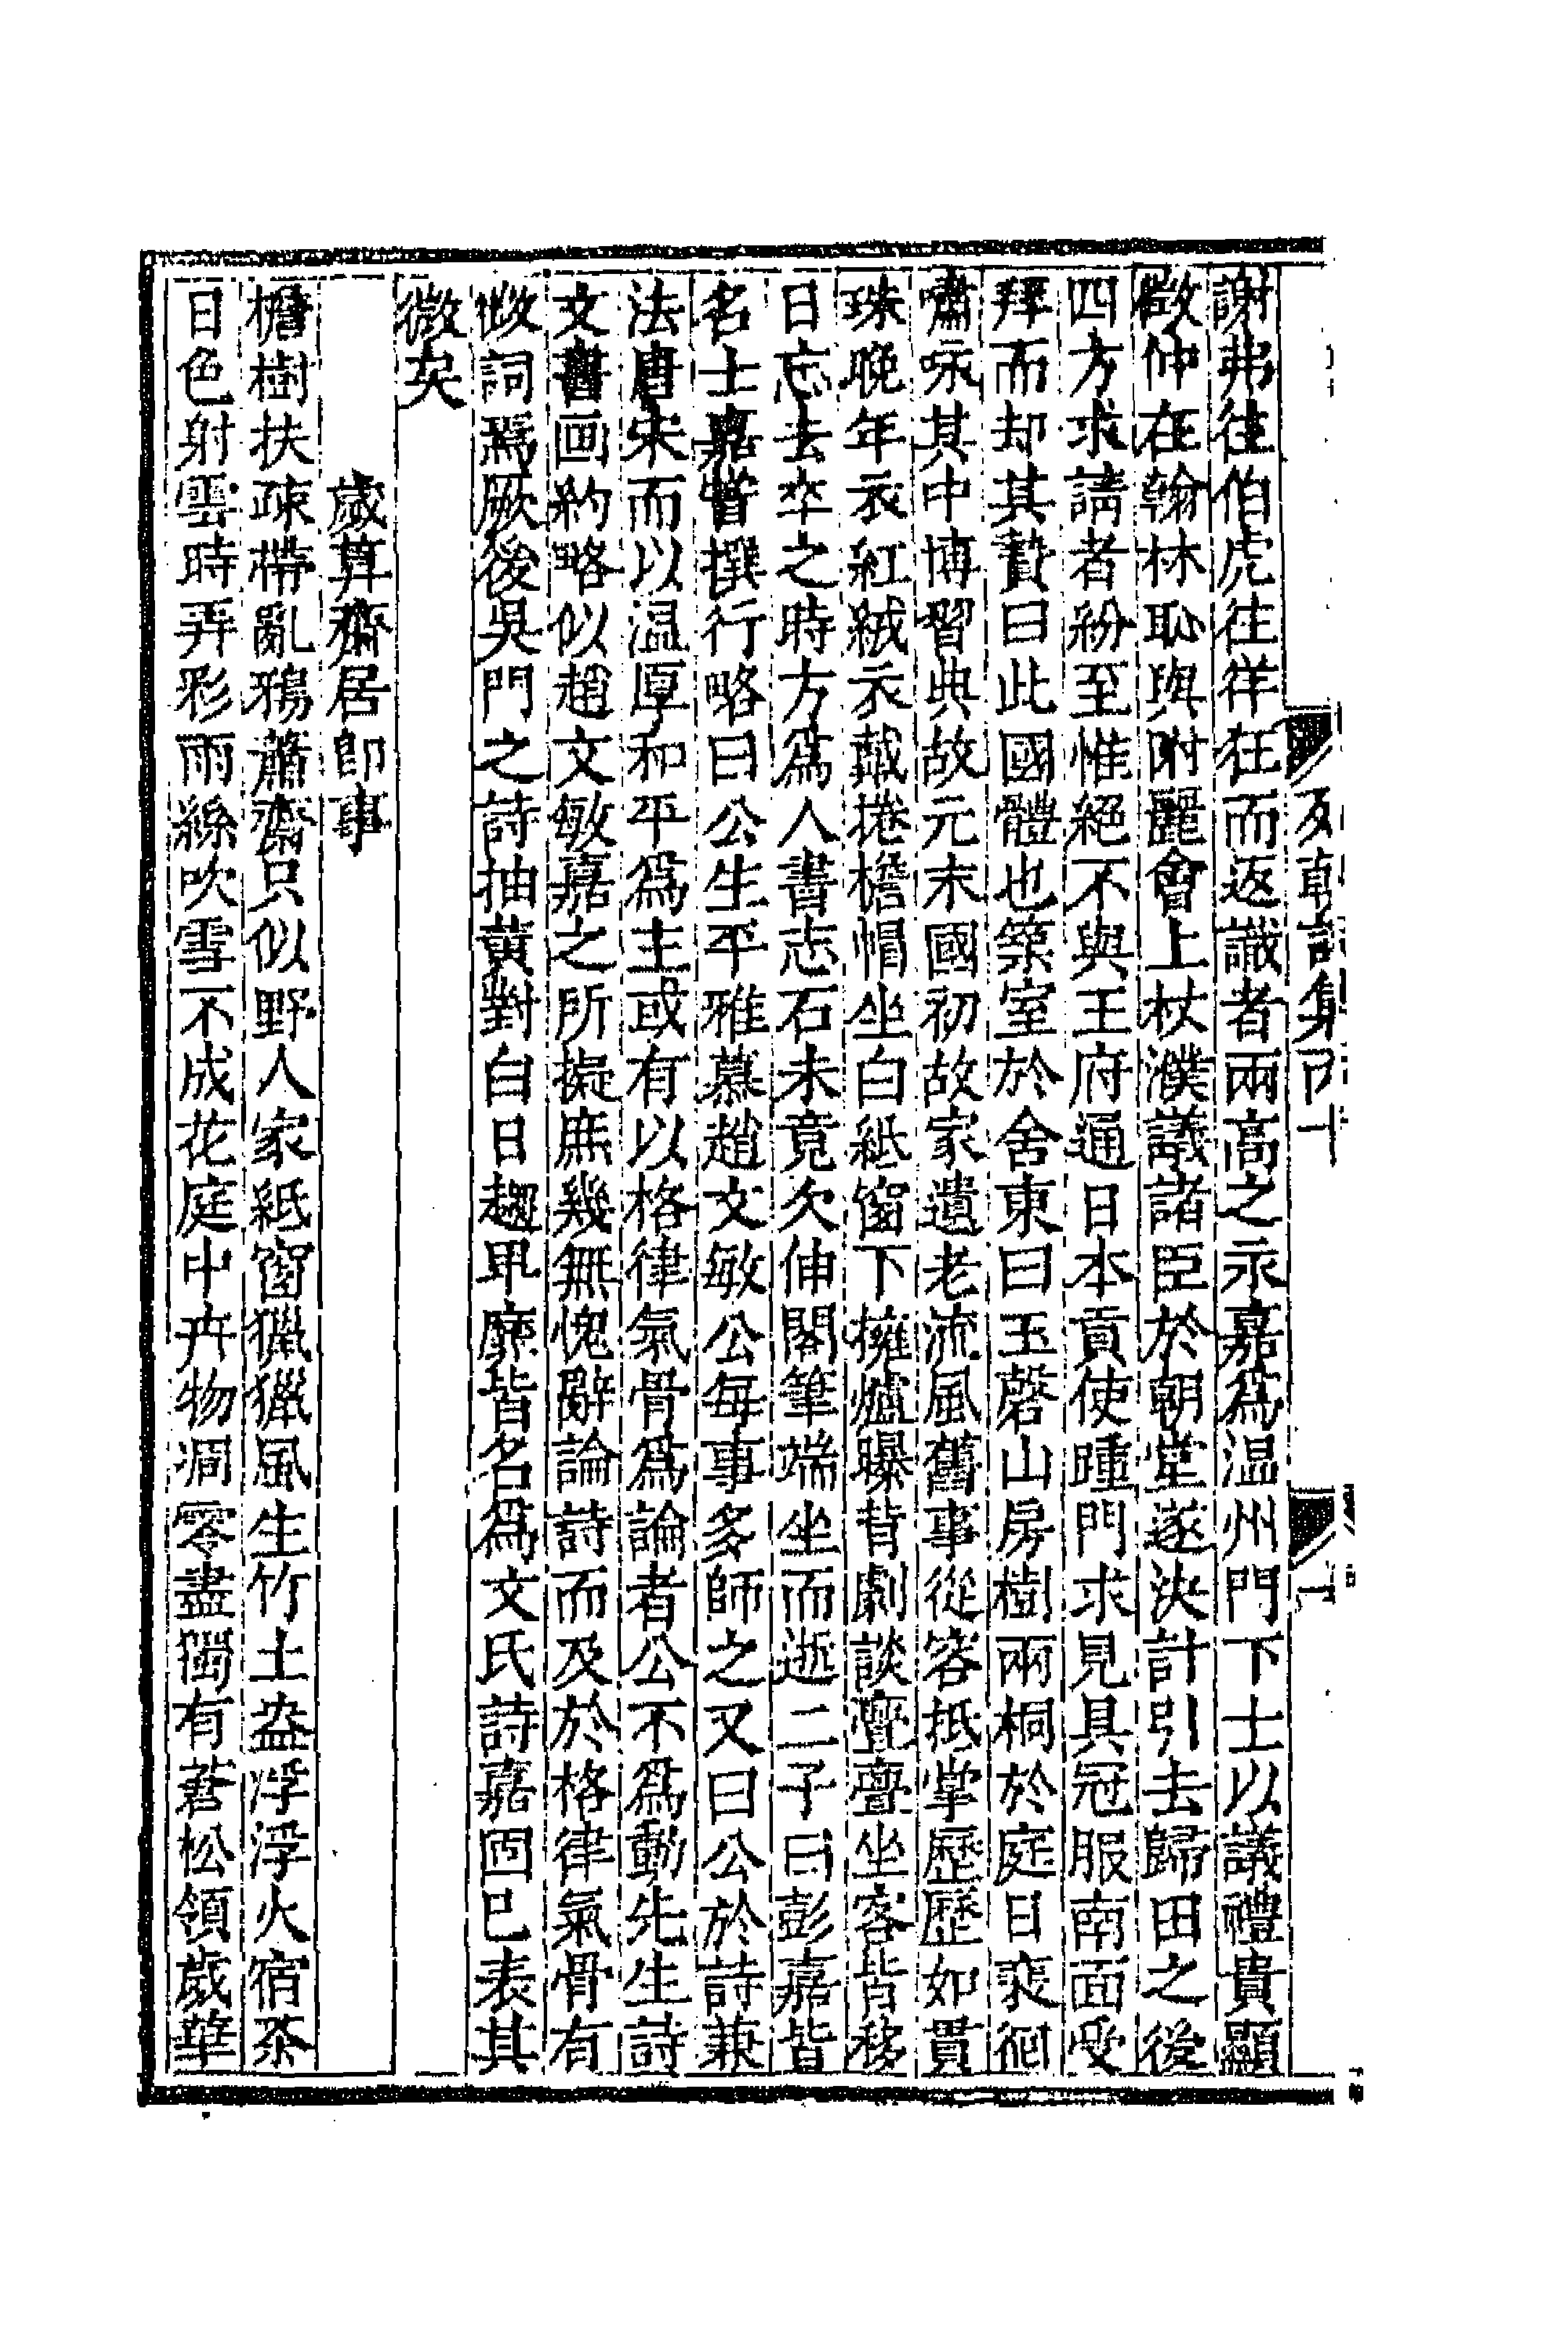 列朝詩集丙十
一
謝弗往伯虎往徉狂而返識者兩高之永嘉爲温州門下士以議禮貴顯
徵仲在翰林恥與附麗會上杖濮議諸臣於朝堂遂決計引去歸田之後
四方求請者紛至惟絕不與王府通日本貢使踵門求見具冠服南面受
拜而却其贄曰此國體也築室於舍東曰玉磬山房樹兩桐於庭日裵徊
嘯咏其中博習典故元末國初故家遺老流風舊事從容抵掌歷歷如貫
珠晚年衣紅絨衣戴捲檐帽坐白紙窗下擁爐曝背劇談亹亹坐客皆移
日忘去卒之時方爲人書志石未竟欠伸閣筆端坐而逝二子曰彭嘉皆
名士嘉嘗撰行略曰公生平雅慕趙文敏公每事多師之又曰公於詩兼
法唐宋而以温厚和平爲主或有以格律氣骨爲論者公不爲動先生詩
文書画約略似趙文敏嘉之所擬庶幾無愧辭論詩而及於格律氣骨有
微詞焉厥後吳門之詩抽黃對白日趨卑靡皆名爲文氏詩嘉固已表其
微矣
歲算齋居即事
檐樹扶疎帶亂鴉蕭齋只似野人家紙窗獵獵風生竹土盎浮浮火宿茶
日色射雲時弄彩雨絲吹雪不成花庭中卉物凋零盡獨有蒼松領歲華